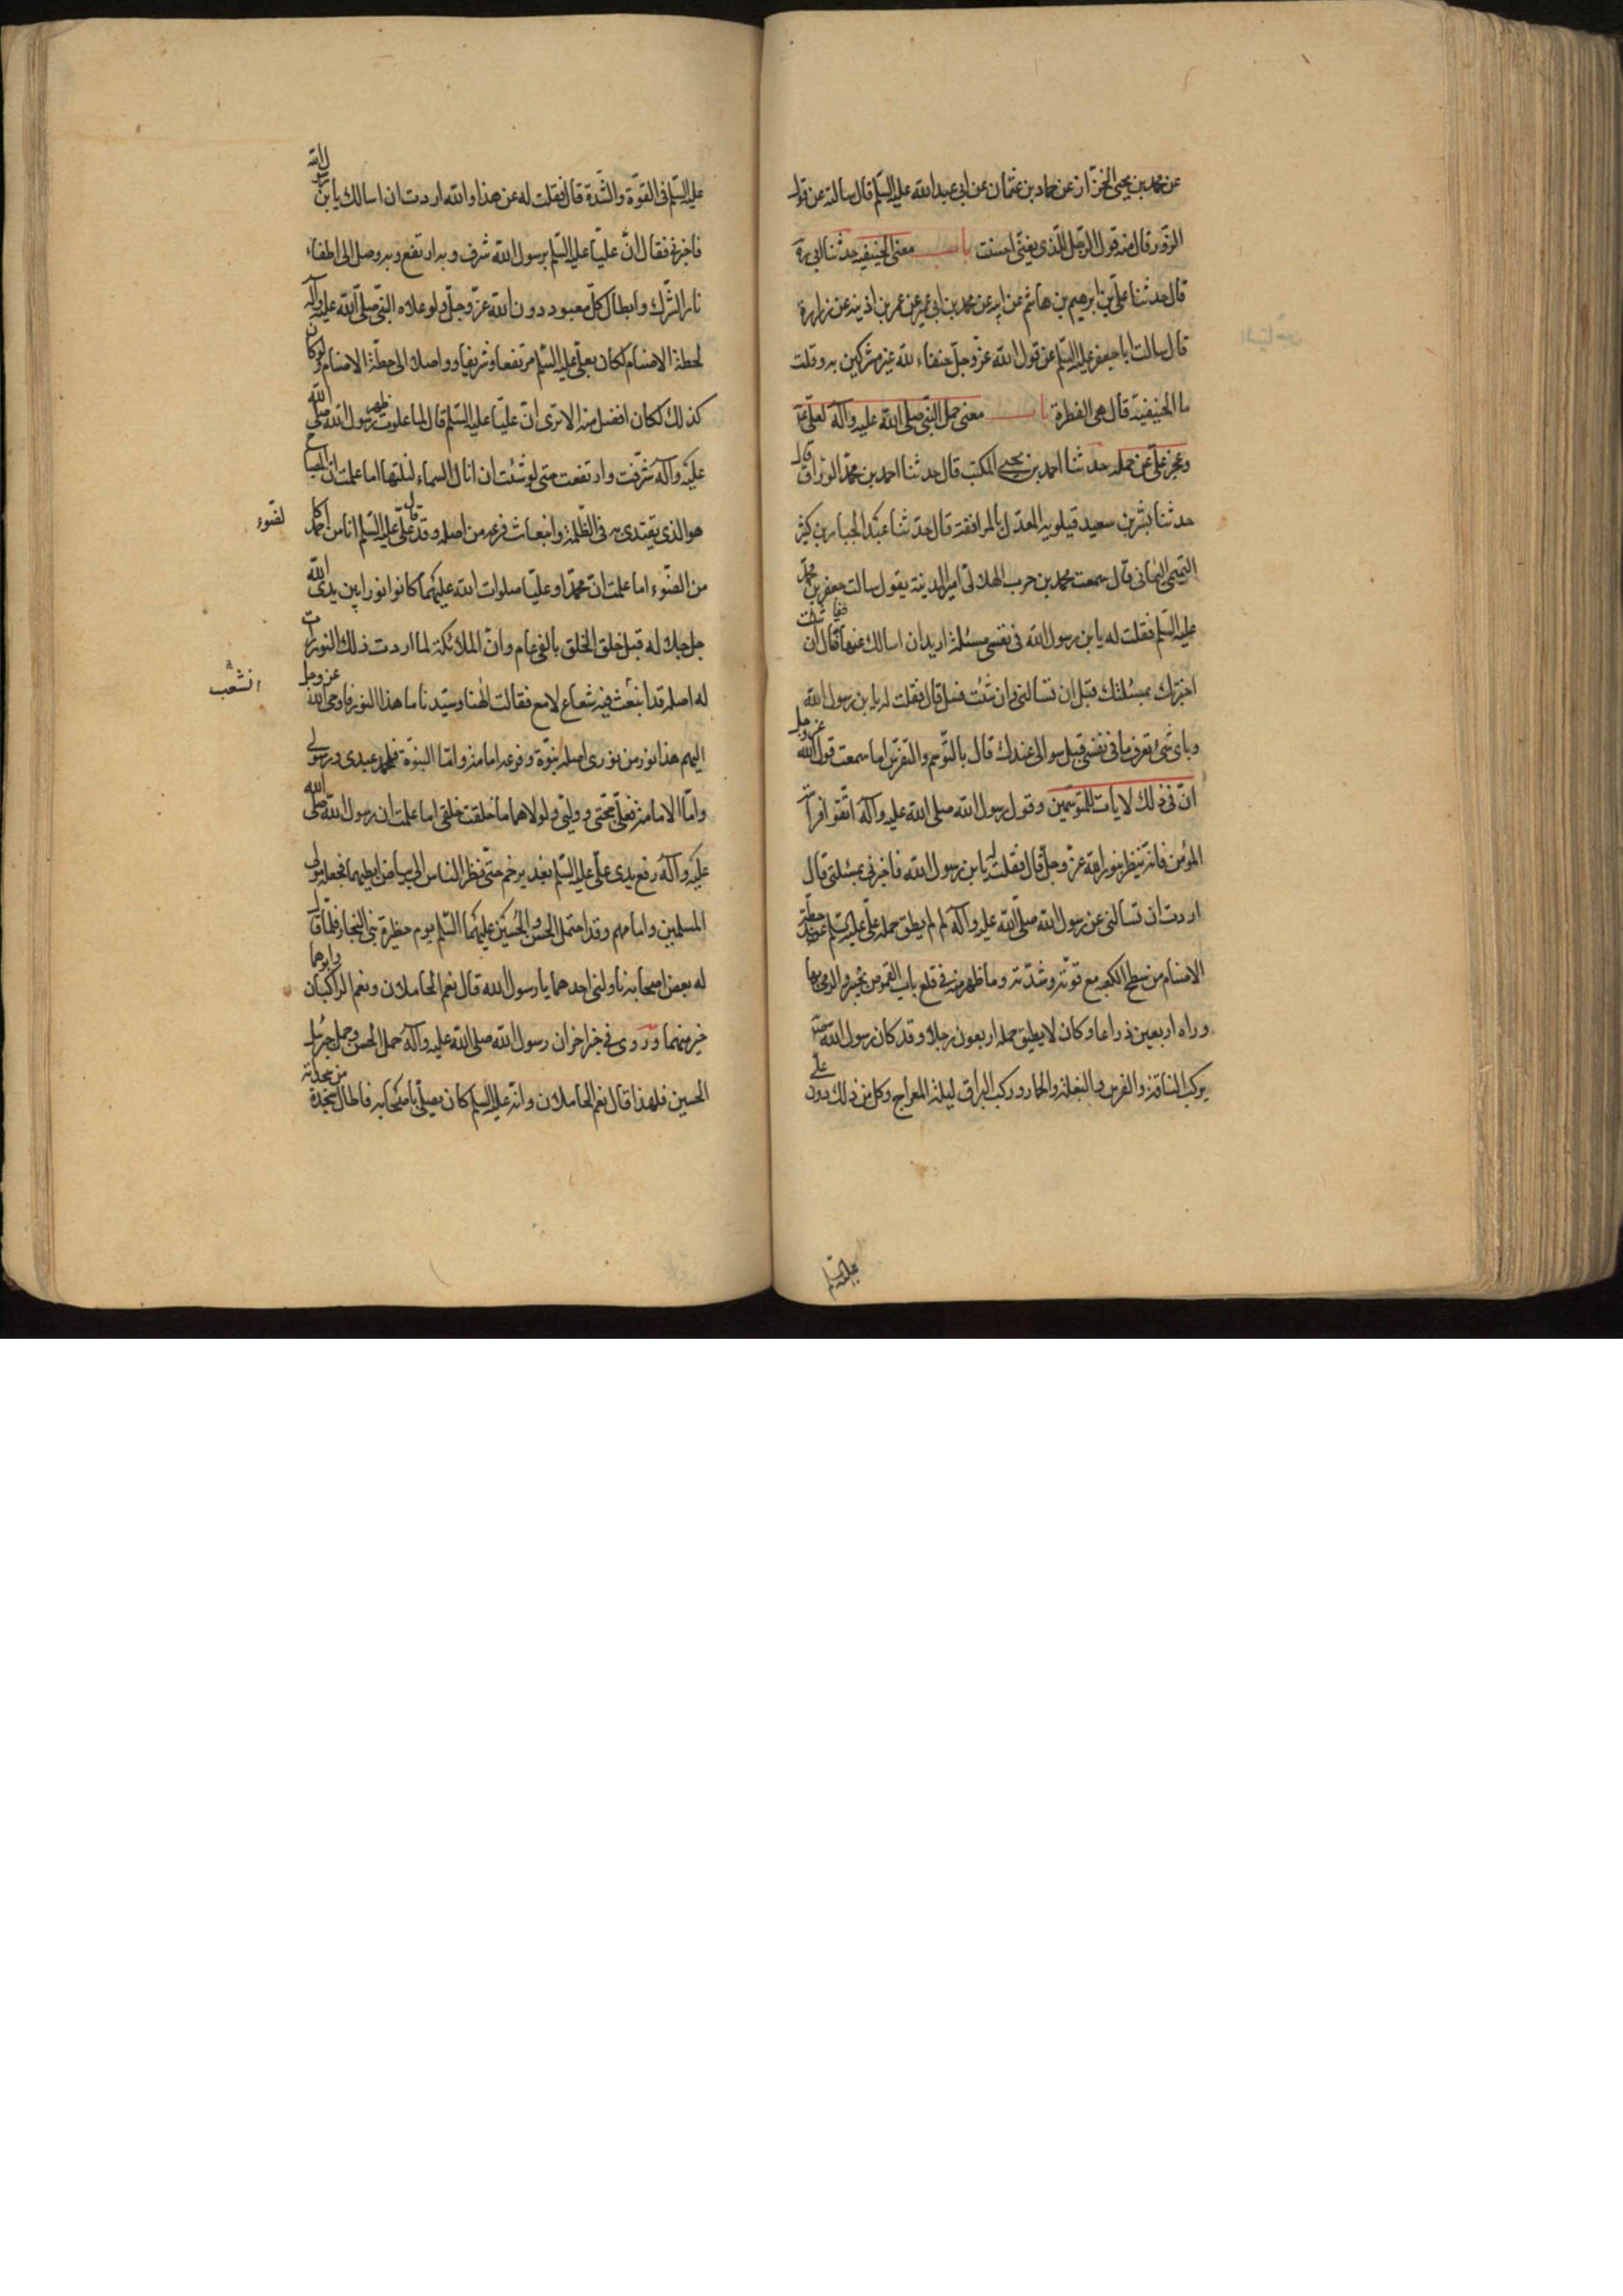 عن محمد بن يحيى الخزّاز عن حماد بن عثمان عن ابى عبد الله عليه السّلم قال سالته عن قول
الزّور قال منه قول الرّجل للّذى يغنّى احسنت باب معنى الحنيفيه حدثنا ابى ره
قال حدثنا علىّ بن ابرهيم بن هاشم عن ابيه عن محمد بن ابى عمير عن عمر بن اذينه عن زراره
قال سالت ابا جعفر عليه السّلم عن قول الله عزّ وجلّ حنفاء لله غير مشركين به وقلت
ما الحنيفيّة قال هى الفطرة باب معنى حمل النّبىّ صلى الله عليه وآله لعلىّ ع
وعجز علىّ عن حمله حدثنا احمد بن يحيى المكتب قال حدثنا احمد بن محمّد الورّاق قال
حدثنا بشر بن سعيد قيلويه المعدّل بالمرافقة قال حدّثنا عبد الجبار بن كثير
التميمى اليمانى قال سمعت محمد بن حرب الهلالى امير المدينة يقول سالت جعفر بن محمّد
عليه السّلم فقلت له يا بن رسول الله فى نفسى مسئلة اريد ان اسالك عنها فقال ان شئت
اخبرتك بمسئلتك قبل ان تسالنى وان شئت فسل قال فقلت له يا بن رسول الله
وباى شئ تعرف ما فى نفسى قبل سوالى عندك قال بالتّوسّم والتّفرّس اما سمعت قول الله عز وجل
انّ فى ذلك لايات للمتوسّمين وقول رسول الله صلى الله عليه وآله اتّقوا فراسة
المؤمن فانّه ينظر بنور الله عزّ وجلّ قال فقلت له يا بن رسول الله فاخبرنى بمسئلتى قال
اردت ان تسالنى عن رسول الله صلّى الله عليه وآله لم لم يطق حمله علىّ عليه السّلم عند حطّه
الاصنام من سطح الكعبه مع قوّته وشدّته وما ظهر منه فى قلع باب القموص بخيبر والرمى بها
وراه اربعين ذراعا وكان لا يطيق حمله اربعون رجلا وقد كان رسول الله
يركب الناقة والفرس والبغلة والحمار وركب البراق ليلة المعراج وكل من ذلك دون علىّ
عليه السّلم
عليه السّلم فى القوّة والشّدة قال فقلت له عن هذا والله اردت ان اسالك يا بن رسول الله
فاخبرنى فقال انّ عليّا عليه السّلم برسول الله شرف وبه ارتفع وبه وصل الى اطفاء
نار الشّرك وابطال كلّ معبود دون الله عزّ وجلّ ولو علاه النّبىّ صلّى الله عليه وآله
لحطة الاصنام لكان بعلىّ عليه السّلم مرتفعا وشريفا وواصلا الى حطّة الاصنام ولو كان
كذلك لكان افضل منه الا ترى انّ عليّا عليه السّلم قال لما علوت ظهر رسول الله صلى الله
عليه وآله شرّفت وارتفعت حتى لو شئت ان انال السماء لنلتها اما علمت ان المصباح
هو الذى يقتدى به فى الظّلمة وانبعاث فرعه من اصله وقد قال علىّ عليه السّلم انا من احمد كا
لضوء
من الضّوء اما علمت انّ محمّدا وعليّا صلوات الله عليهما كانوا نورا بين يدى الله
جل جلاله قبل خلق الخلق بالفى عام وانّ الملائكة لما رات ذلك النور رات
له اصلا قد انبعث فيه شعاع لامع فقالت الهنا وسيّدنا ما هذا النور فاوحى الله عز وجل
انشعب
اليهم هذا نور من نورى اصله نبوّة وفرعه امامة وامّا النبوّة فلمحمد عبدى ورسولى
وامّا الامامة فعلىّ حجّتى ووليّى ولولاهما ما خلقت خلقى اما علمت ان رسول الله صلى الله
عليه وآله رفع يدى علىّ عليه السّلم بغدير خم حتّى نظر النّاس الى بياض ابطيهما فجعله مولى
المسلمين وامامهم وقد احتمل الحسن والحسين عليهما السّلم يوم حظيرة بنى النجار فلمّا قال
له بعض اصحابه ناولنى احدهما يا رسول الله قال نعم الحاملان ونعم الراكبان وابوهما
خير منهما وروى فى خبر اخر ان رسول الله صلى الله عليه وآله حمل الحسن وحمل جبرئيل
الحسين فلهذا قال نعم الحاملان وانّه عليه السلم كان يصلّى باصحابه فاطال سجدة من سجداته